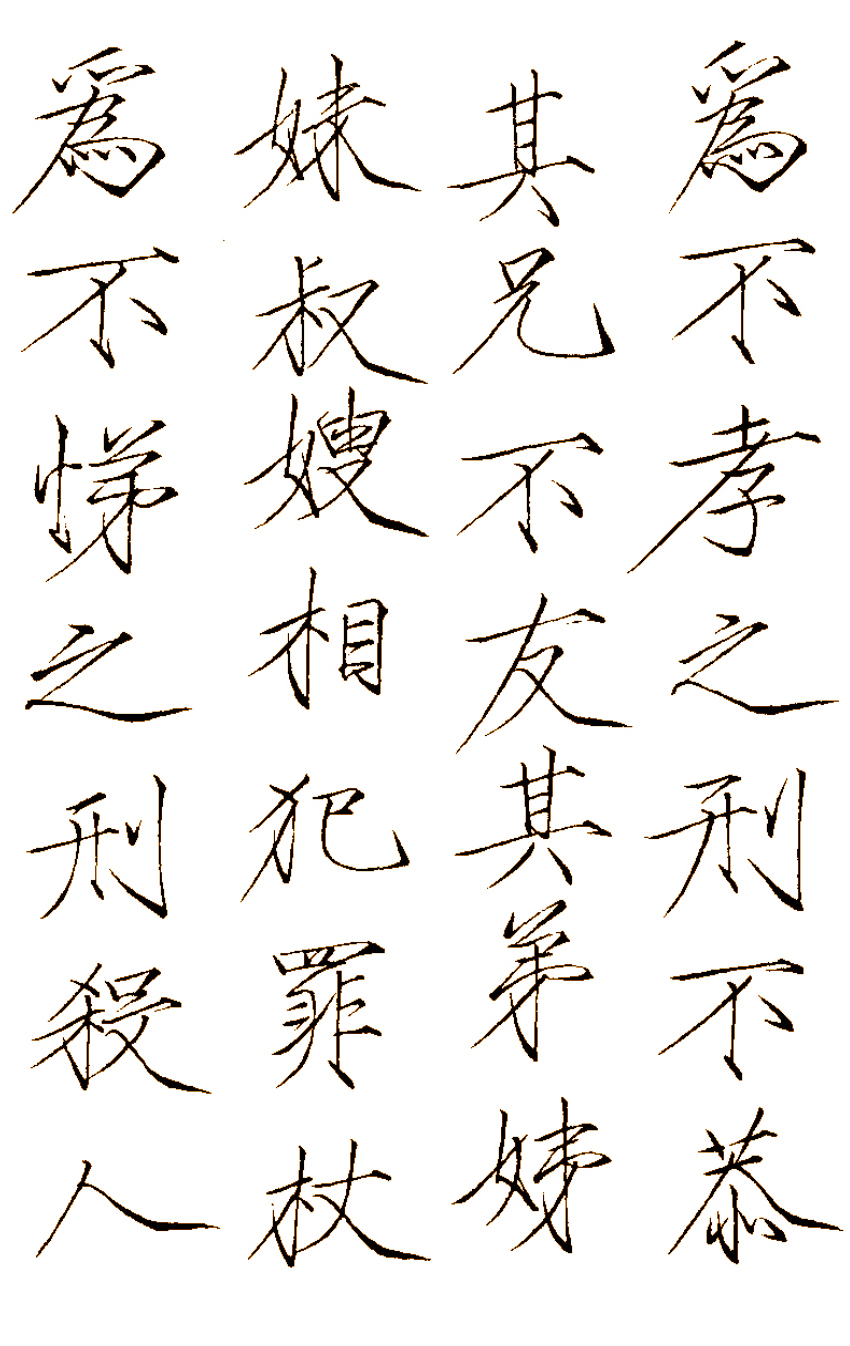 爲不孝之刑不恭
其兄不友其弟姊
妹叔嫂相犯罪杖
爲不悌之刑殺人